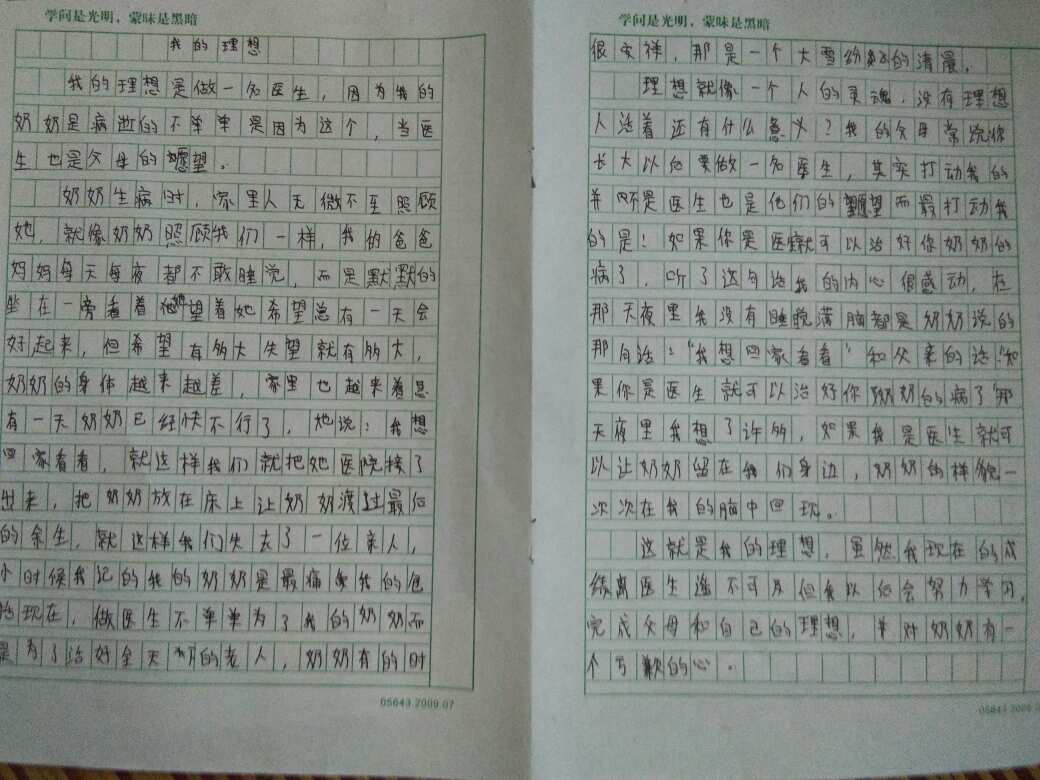 学问是光明，蒙昧是黑暗
我的理想
我的理想是做一名医生，因为我的
奶奶是病逝的不单单是因为这个，当医
生也是父母的愿望。
奶奶生病时，家里人无微不至照顾
她，就像奶奶照顾我们一样，我的爸爸
妈妈每天每夜都不敢睡觉，而是默默的
坐在一旁看着她望着她希望总有一天会
好起来，但希望有多大失望就有多大，
奶奶的身体越来越差，家里也越来着急
有一天奶奶已经快不行了，她说：我想
回家看看，就这样我们就把她医院接了
出来，把奶奶放在床上让奶奶渡过最后
的余生，就这样我们失去了一位亲人，
小时候我记的我的奶奶是最疼爱我的包
括现在，做医生不单单为了我的奶奶而
是为了治好全天下的老人，奶奶有的时
05643 2009.07
学问是光明，蒙昧是黑暗
很安祥，那是一个大雪纷的清晨，
理想就像一个人的灵魂，没有理想
人活着还有什么意义？我的父母常说你
长大以后要做一名医生，其实打动我的
并不是医生也是他们的愿望而最打动我
的是！如果你是医就可以治好你奶奶的
病了，听了这句话我的内心很感动，在
那天夜里我没有睡晚满脑都是奶奶说的
那句话："我想回家看看"和父亲的话"如
果你是医生就可以治好你奶奶的病了"那
天夜里我想了许多，如果我是医生就可
以让奶奶留在我们身边，奶奶的样貌一
次次在我的脑中回现。
这就是我的理想，虽然我现在的成
绩离医生遥不可及但我以后会努力学习，
完成父母和自己的理想，并对奶奶有一
个亏歉的心。
05643 2009.0